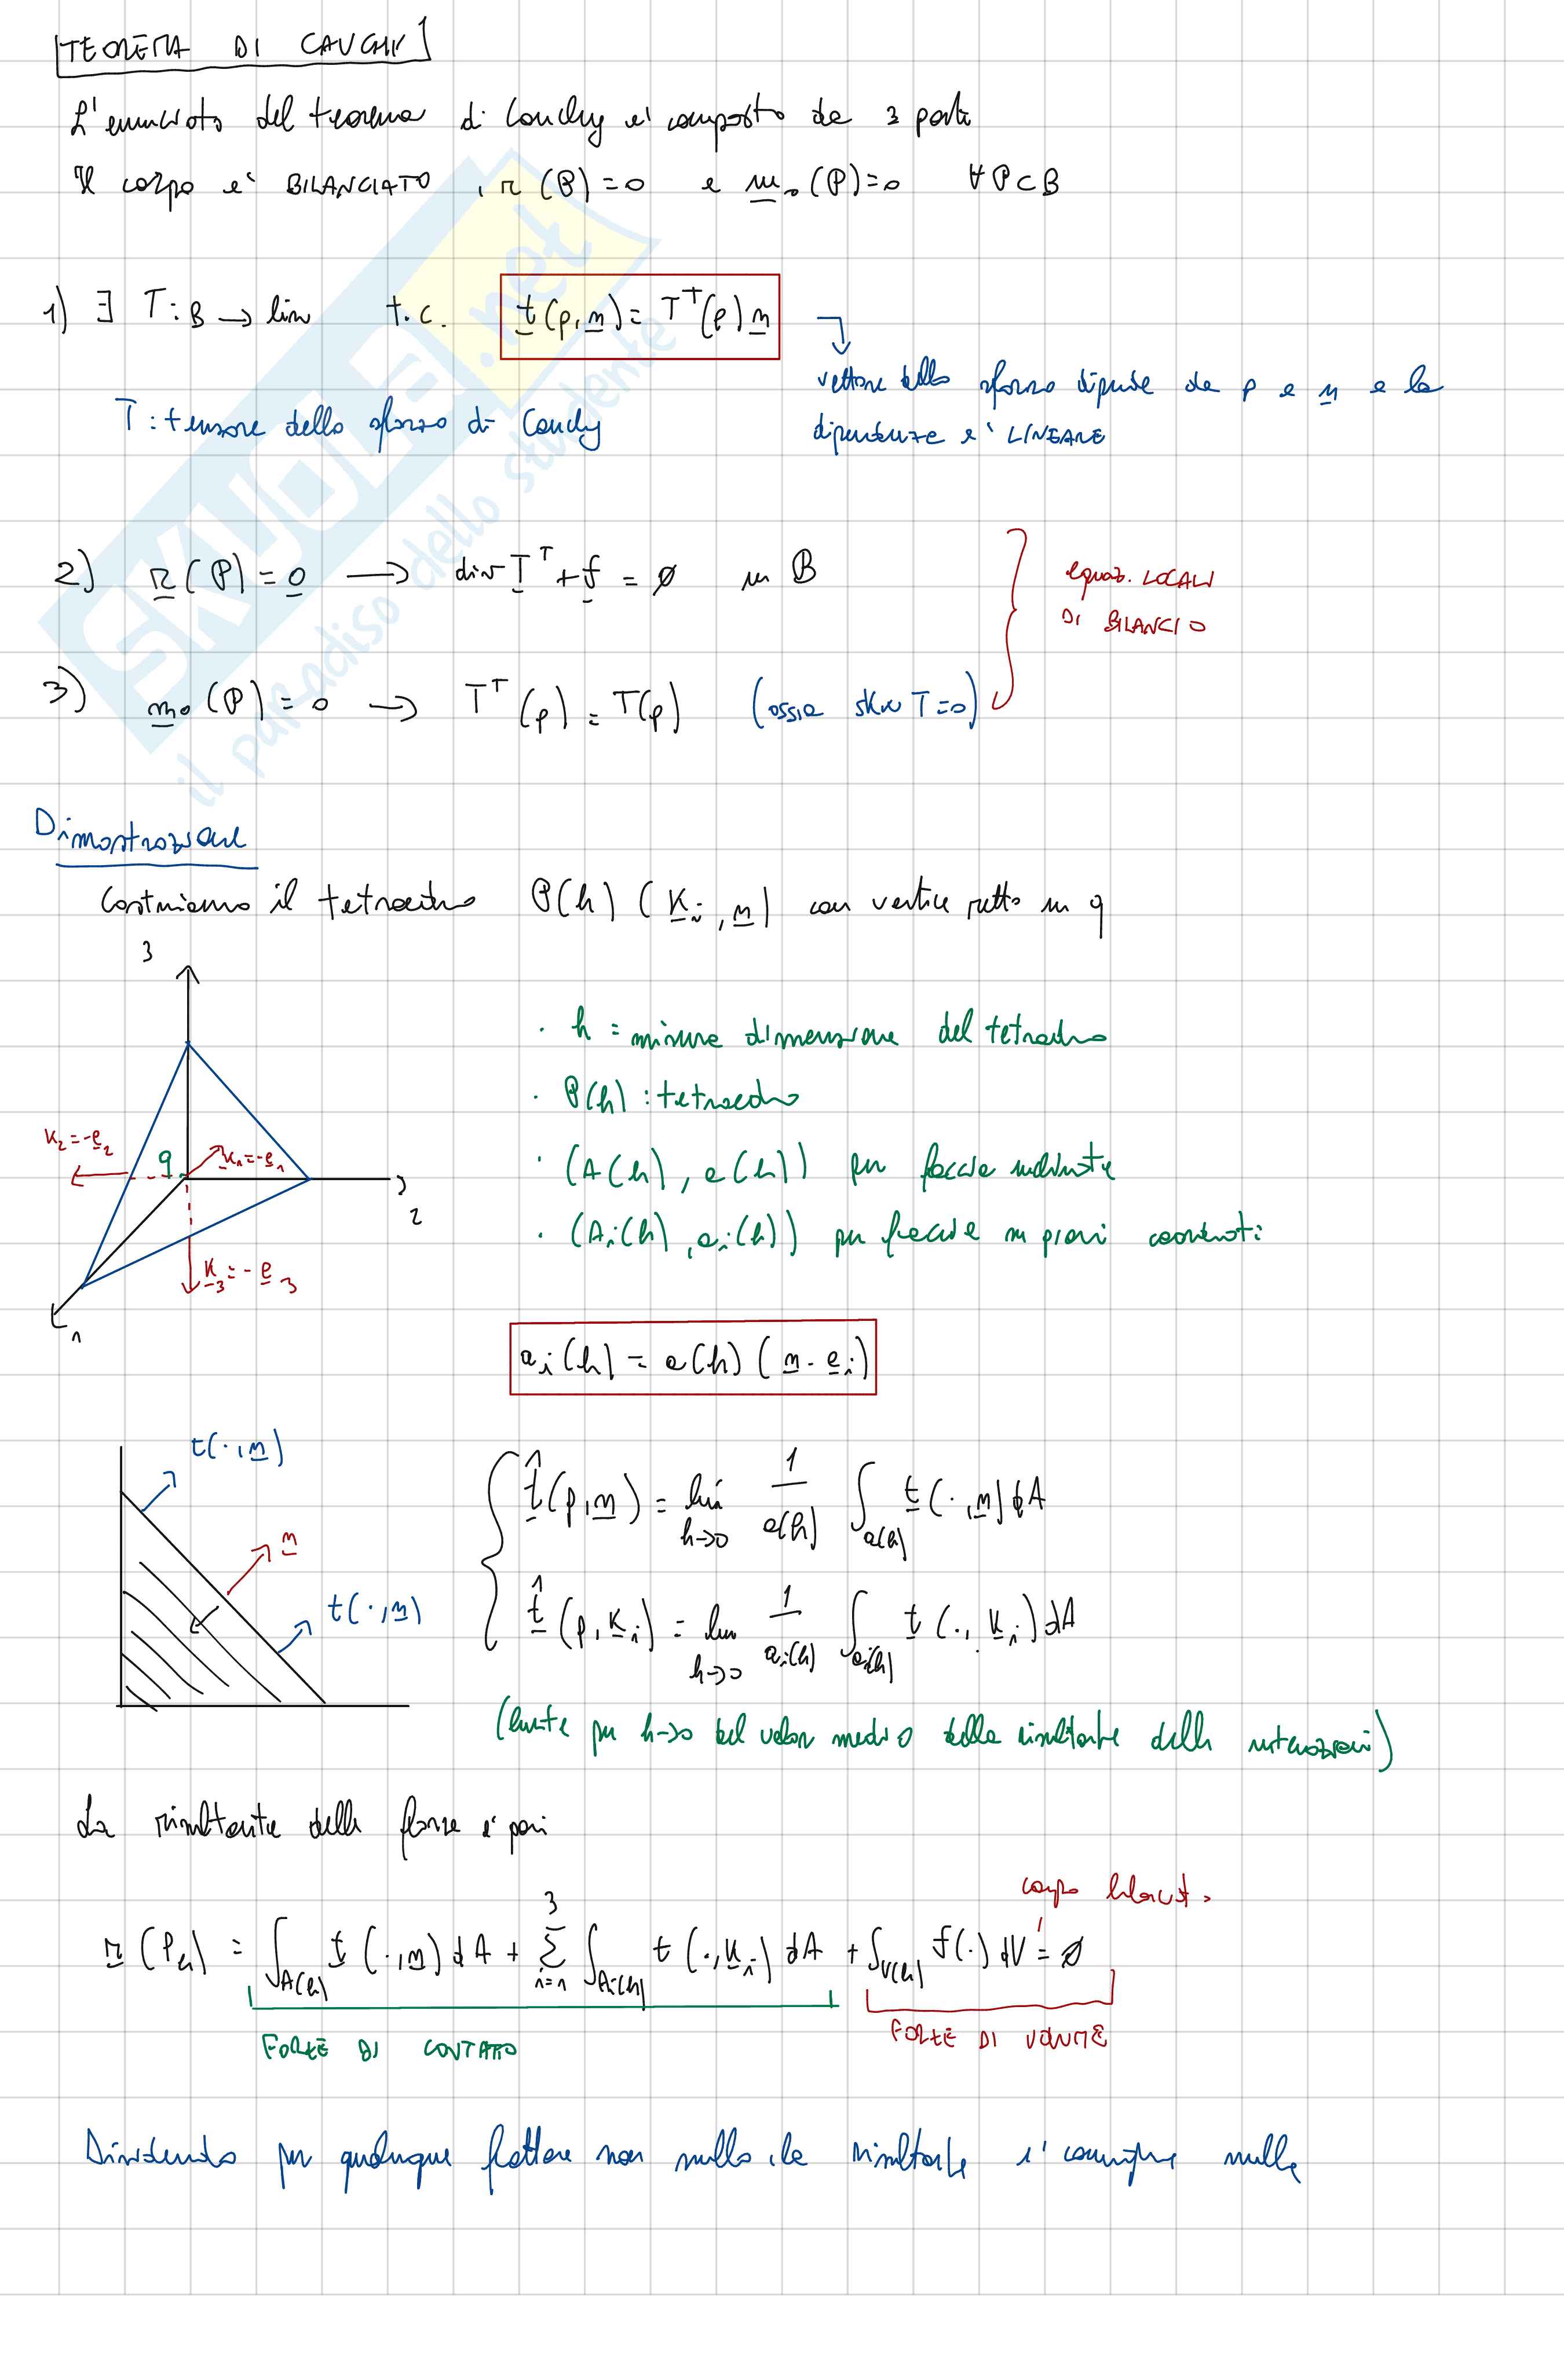 TEOREMA DI CAUCHY
L'enunciato del teorema di Cauchy e' composto da 3 parti
Il corpo e' BILANCIATO , r (P) = 0 e m₀ (P) = 0 ∀ P ⊂ B
1) ∃ T : B → lin t.c. t(p,n) = Tᵀ(p) n
vettore dello sforzo dipende da p e n e la
dipendenza e' LINEARE
T : tensore dello sforzo di Cauchy
2) r (P) = 0 → div Tᵀ + f = ∅ in B
equaz. LOCALI
DI BILANCIO
3) m₀ (P) = 0 → Tᵀ (p) = T(p) (ossia skw T = 0)
Dimostrazione
Costruiamo il tetraedro P(h) (Kᵢ , n) con vertice retto in q
3
K₂ = -e₂
q
K₁ = -e₁
2
K₃ = -e₃
1
· h = misura dimensione del tetraedro
· P(h) : tetraedro
· (A(h) , a(h)) per faccia inclinata
· (Aᵢ(h) , aᵢ(h)) per faccia su piani coordinati
aᵢ(h) = a(h) (n · eᵢ)
t(·,n)
n
t(·,n)
t̂(p,n) = lim h→0 1/a(h) ∫a(h) t(·,n) dA
t̂(p,Kᵢ) = lim h→0 1/aᵢ(h) ∫aᵢ(h) t(·,Kᵢ) dA
(limite per h→0 del valor medio della risultante delle interazioni)
La risultante delle forze e' pari
corpo bilanciat.
r (Ph) = ∫A(h) t(·,n) dA + Σ i=1 3 ∫Aᵢ(h) t(·,Kᵢ) dA + ∫V(h) f(·) dV = ∅
FORZE DI CONTATTO
FORZE DI VOLUME
Dividendo per qualunque fattore non nullo , la risultante e' comunque nulla
SKUOLA.net
il paradiso dello studente